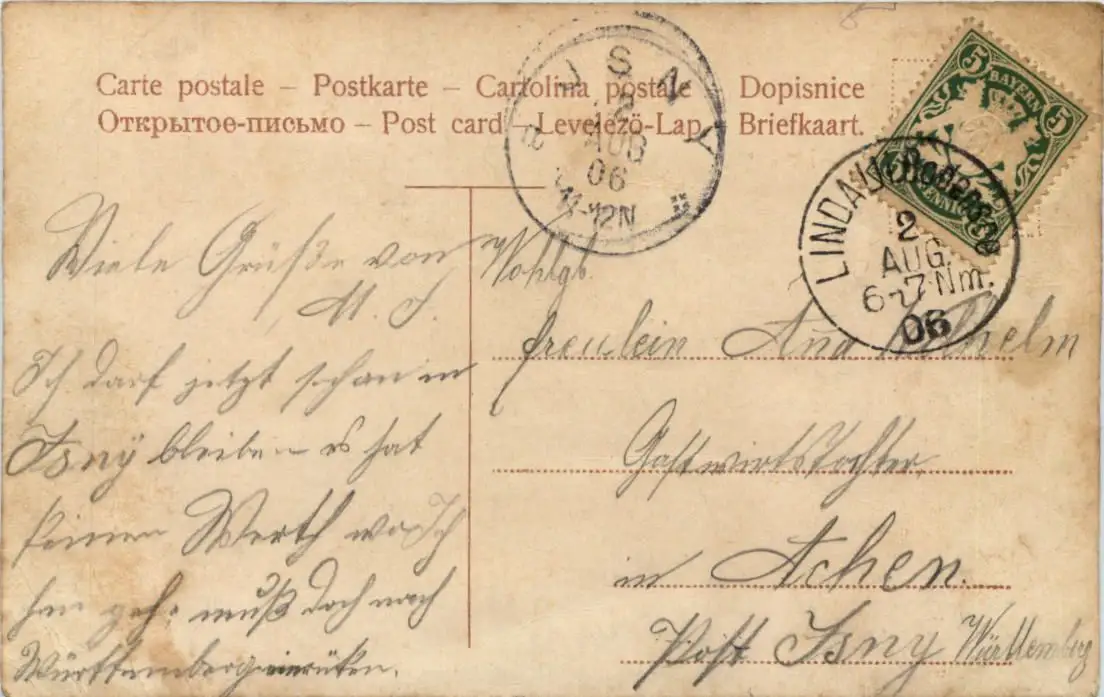 Carte postale – Postkarte – Cartolina postale Dopisnice
Открытое-письмо – Post card – Levelező-Lap. Briefkaart.
JSNY
2
AUG
06
11-12N
5 BAYERN 5
PFENNIG
LINDAU Bodensee
2
AUG.
6-7 Nm.
06
Viele Grüße von
M. J.
Ich darf jetzt schon in
Isnÿ bleiben es hat
keinen Werth
geh muß doch nach
Württemberg einrüken.
Wohlgb.
freulein Ana Wilhelm
Gastwirtstochter,
in Achen.
Post Isny Württemberg